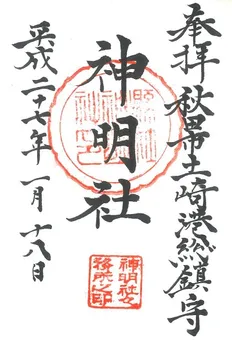 奉拝
秋田土崎港総鎮守
神明社
平成二十七年一月十八日
神明社之
務所之印